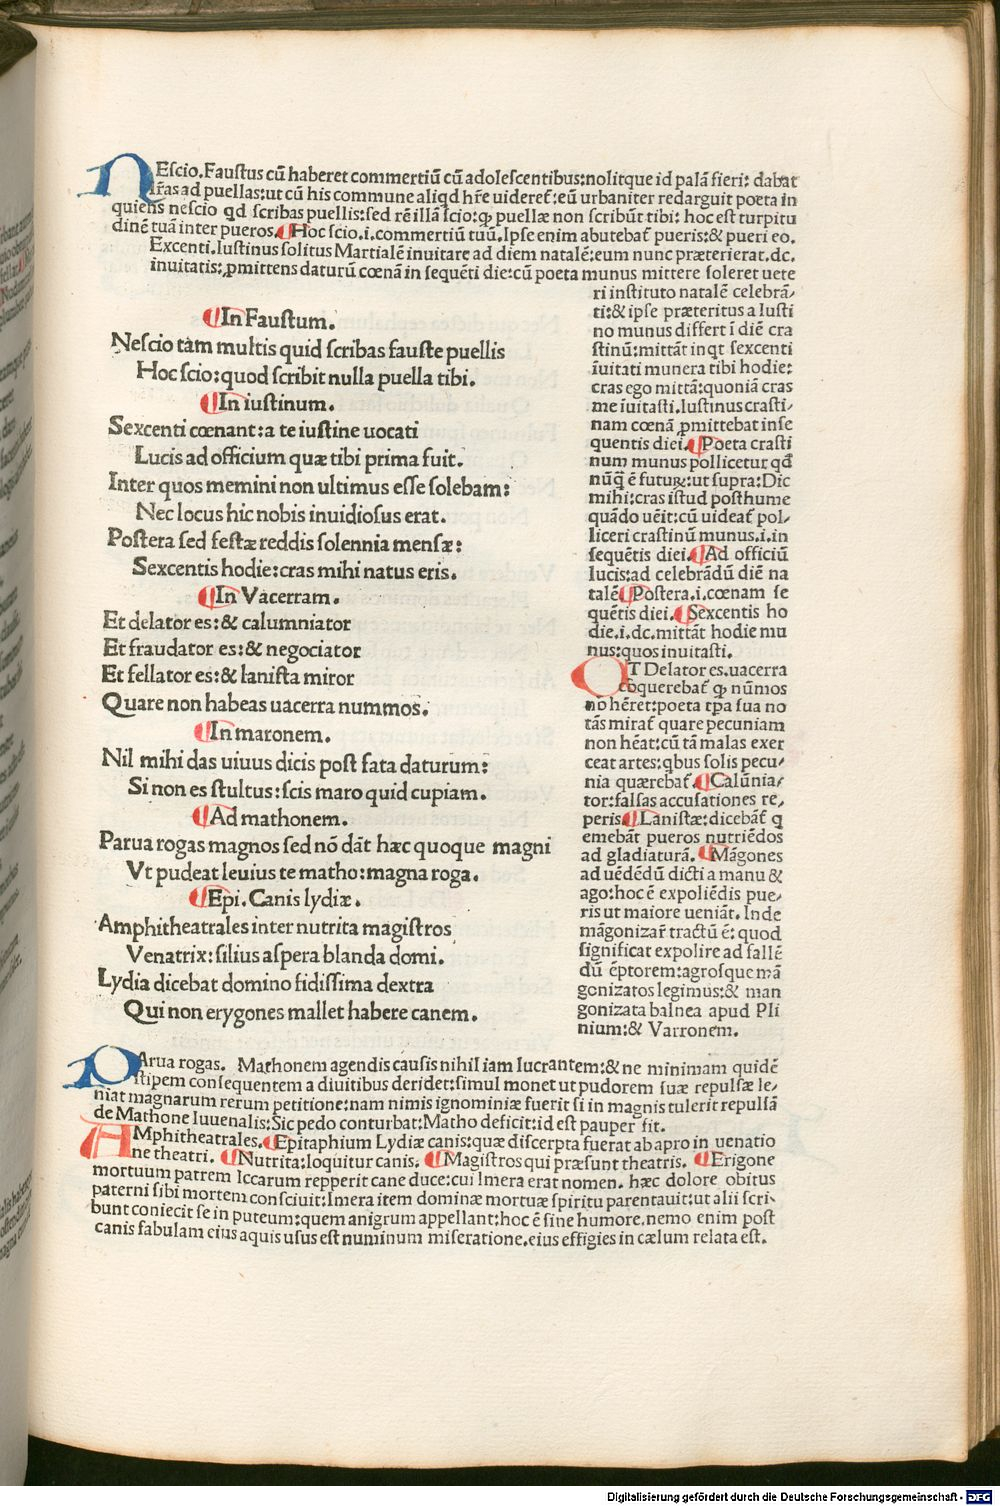 NEſcio.Fauſtus cū haberet commertiū cū adoleſcentibus:nolitque id palā fieri: dabat
lr̄as ad puellas:ut cū his commune aliqd hr̄e uideret᷑:eū urbaniter redarguit poeta in
quiens neſcio qd ſcribas puellis:ſed rē illā ſcio:ꝙ puellæ non ſcribūt tibi: hoc eſt turpitu
dinē tuā inter pueros.¶Hoc ſcio.i.commertiū tuū.Ipſe enim abutebat᷑ pueris:& pueri eo.
Excenti.Iuſtinus ſolitus Martialē inuitare ad diem natalē:eum nunc præterierat.dc.
inuitatis:ꝓmittens daturū cœnā in ſequēti die:cū poeta munus mittere ſoleret uete
ri inſtituto natalē celebrā/
ti:& ipſe præteritus a Iuſti
no munus differt ī diē cra
ſtinū:mittāt inqt ſexcenti
īuitati munera tibi hodie:
cras ego mittā:quoniā cras
me īuitaſti.Iuſtinus craſti/
nam cœnā ꝓmittebat inſe
quentis diei.¶Poeta craſti
num munus pollicetur qd
nūq̄ ē futuꝝ:ut ſupra:Dic
mihi:cras iſtud poſthume
quādo uēit:cū uideat᷑ pol/
liceri craſtinū munus.i.in
ſequētis diei.¶Ad officiū
lucis:ad celebrādū diē na
talē¶Poſtera.i.cœnam ſe
quētis diei.¶Sexcentis ho
die.i.dc.mittāt hodie mu
nus:quos inuitaſti.
¶In Fauſtum.
Neſcio tam multis quid ſcribas fauſte puellis
Hoc ſcio:quod ſcribit nulla puella tibi.
¶In iuſtinum.
Sexcenti cœnant:a te iuſtine uocati
Lucis ad officium quæ tibi prima fuit.
Inter quos memini non ultimus eſſe ſolebam:
Nec locus hic nobis inuidioſus erat.
Poſtera ſed feſtæ reddis ſolennia menſæ:
Sexcentis hodie:cras mihi natus eris.
¶In Vacerram.
Et delator es:& calumniator
Et fraudator es:& negociator
Et fellator es:& laniſta miror
Quare non habeas uacerra nummos.
¶In maronem.
Nil mihi das uiuus dicis poſt fata daturum:
Si non es ſtultus:ſcis maro quid cupiam.
¶Ad mathonem.
Parua rogas magnos ſed nō dāt hæc quoque magni
Vt pudeat leuius te matho:magna roga.
¶Epi.Canis lydiæ.
Amphitheatrales inter nutrita magiſtros
Venatrix:ſilius aſpera blanda domi.
Lydia dicebat domino fidiſſima dextra
Qui non erygones mallet habere canem.
OT Delator es.uacerra
cōquerebat᷑ ꝙ nūmos
nō hēret:poeta tꝑa ſua no
tās mirat᷑ quare pecuniam
non hēat:cū tā malas exer
ceat artes:qbus ſolis pecu/
nia quærebat᷑.¶Calūnia/
tor:falſas accuſationes re/
peris¶Laniſtæ:dicebāt᷑ q
emebāt pueros nutriēdos
ad gladiaturā.¶Māgones
ad uēdēdū dicti a manu &
ago:hoc ē expoliēdis pue/
ris ut maiore ueniāt.Inde
māgonizar̄ tractū ē:quod
ſignificat expolire ad fallē
dū ēptorem:agroſque mā
gonizatos legimus:& man
gonizata balnea apud Pli
nium:& Varronem.
PArua rogas. Mathonem agendis cauſis nihil iam lucrantem:& ne minimam quidē
ſtipem conſequentem a diuitibus deridet:ſimul monet ut pudorem ſuæ repulſæ le/
niat magnarum rerum petitione:nam nimis ignominiæ fuerit ſi in magnis tulerit repulſā
de Mathone Iuuenalis:Sic pedo conturbat:Matho deficit:id eſt pauper fit.
AMphitheatrales.¶Epitaphium Lydiæ canis:quæ diſcerpta fuerat ab apro in uenatio
ne theatri. ¶Nutrita:loquitur canis. ¶Magiſtros qui præſunt theatris. ¶Erigone
mortuum patrem Iccarum repperit cane duce:cui Imera erat nomen. hæc dolore obitus
paterni ſibi mortem conſciuit:Imera item dominæ mortuæ ſpiritu parentauit:ut alii ſcri/
bunt coniecit ſe in puteum:quem anigrum appellant:hoc ē ſine humore.nemo enim poſt
canis fabulam eius aquis uſus eſt numinum miſeratione.eius effigies in cælum relata eſt.
Digitalisierung gefördert durch die Deutsche Forschungsgemeinschaft - DFG